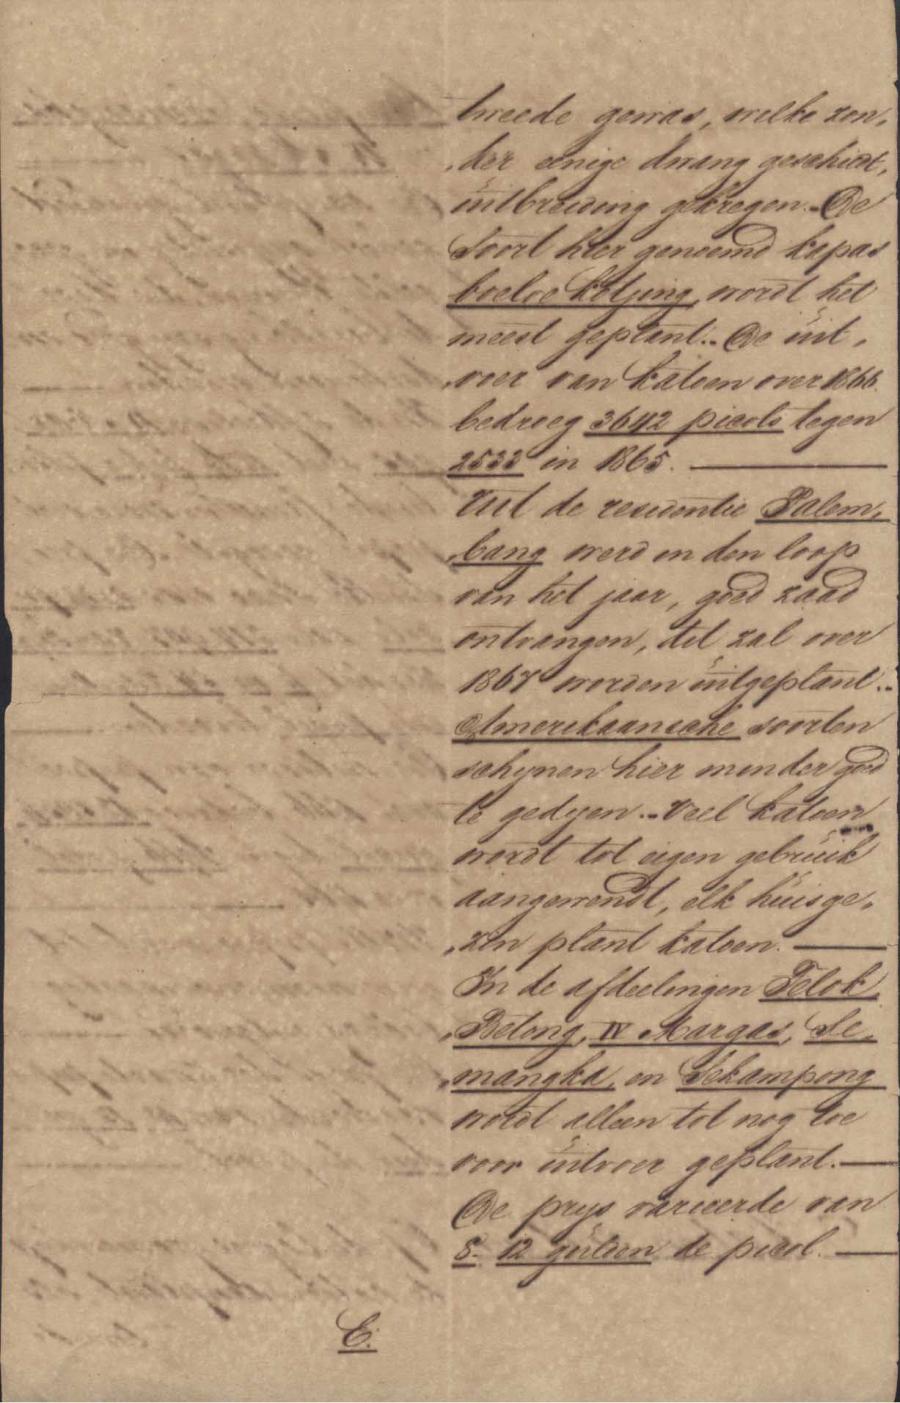 tweede gewas, welke zon„
„der eenige dwang geschiedt,
uitbreiding gekregen. De
soort hier genoemd kapas
boeloe kotjing, wordt het
meest geplant. De uit„
„voer van katoen over 1866
bedroeg 3642 picols tegen
2533 in 1865.
Uit de residentie Palem„
„bang werd in den loop
van het jaar, goed zaad
ontvangen, dit zal over
1867 worden uitgeplant.
Amerikaansche soorten
schynen hier minder goed
te gedyen. Veel katoen
wordt tot eigen gebruik
aangewendt, elk huisge„
„zin plant katoen.
In de afdeelingen Telok
„Betong, IV Margas, Se„
„mangka, en Sekampong
wordt alleen tot nog toe
voor uitvoer geplant.
De prys varieerde van
8. 12 gulden de picol.
C.